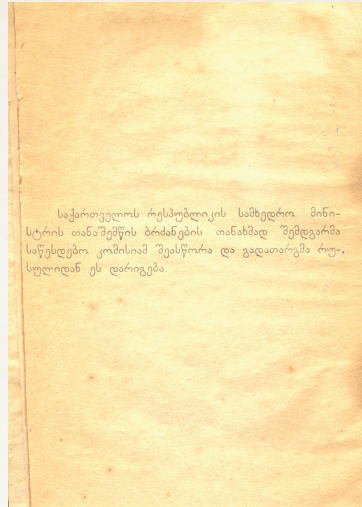 საქართველოს რესპუბლიკის სამხედრო მინი-
სტრის თანაშემწის ბრძანების თანახმად შემდგარმა
საწესდებო კომისიამ შეასწორა და გადათარგმა რუ-
სულიდან ეს დარიგება